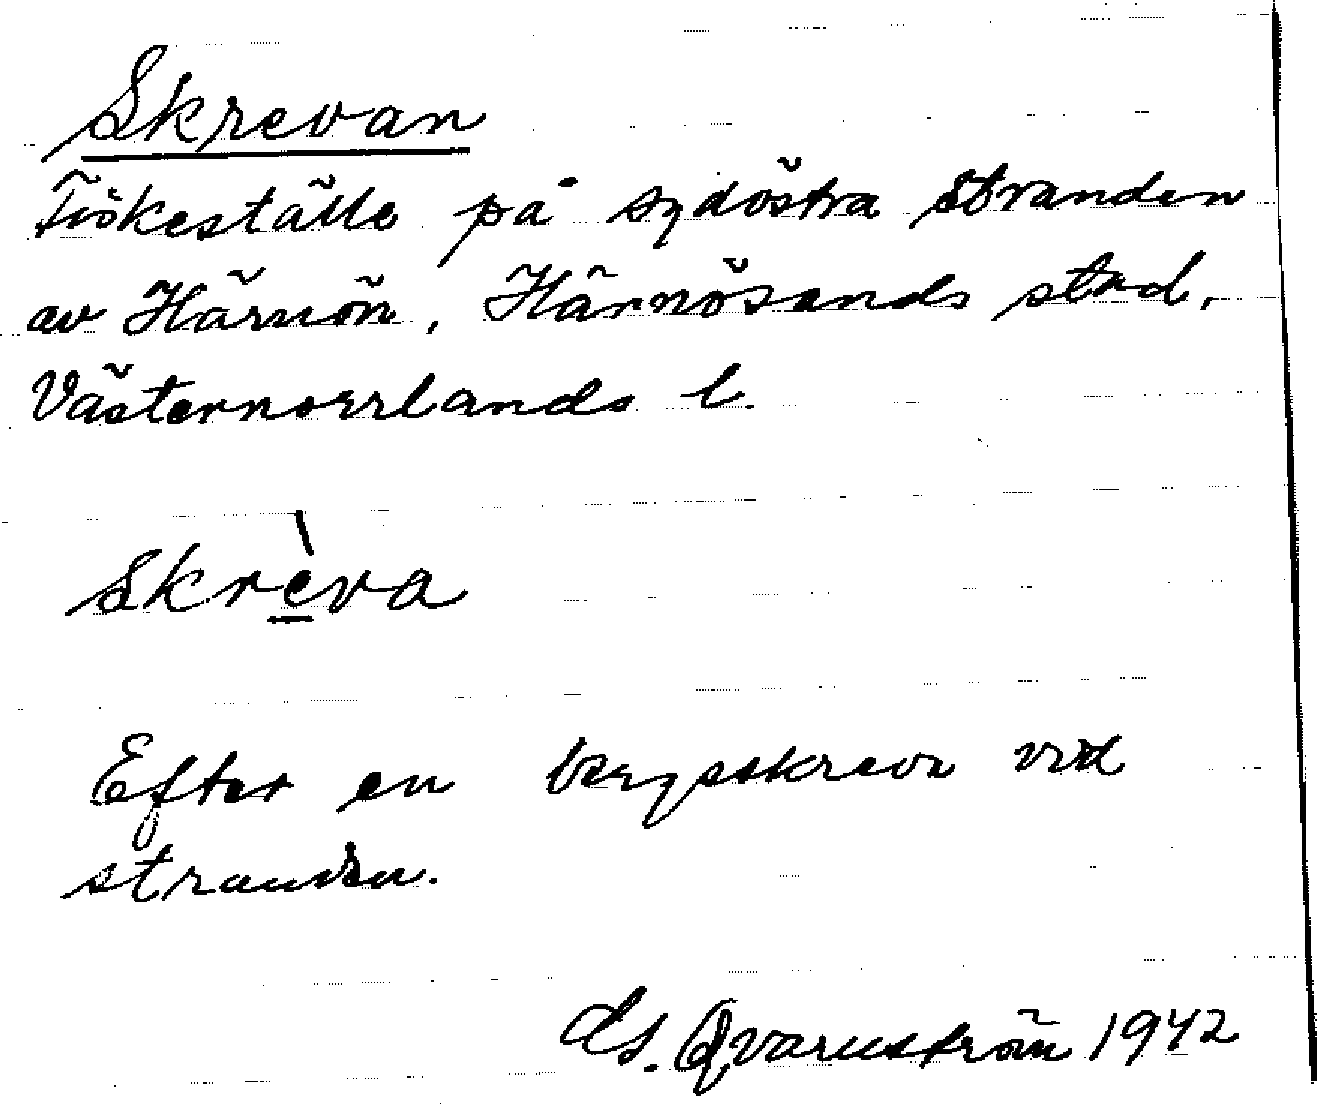 Skrevan
Fiskeställe på sydöstra stranden
av Härnön, Härnösands stad,
Västernorrlands l.
Skrèva
Efter en bergsskreva vid
stranden.
Qvarnström 1942